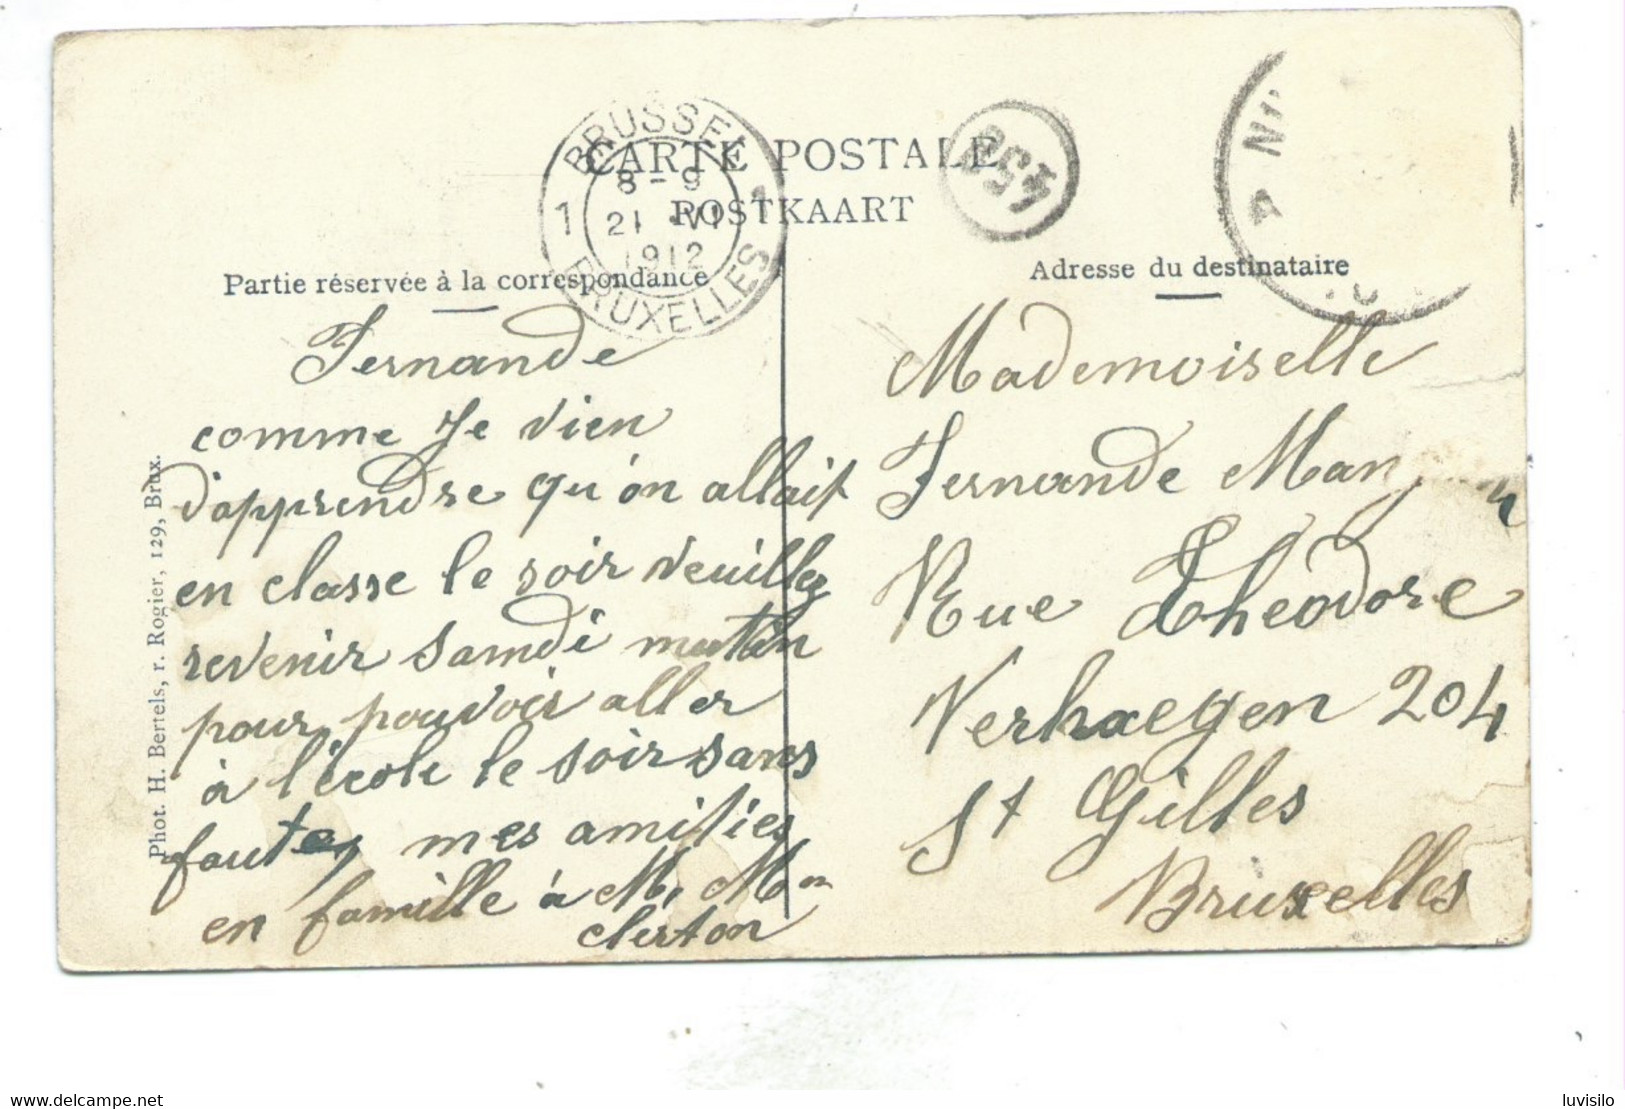 CARTE POSTALE
POSTKAART
BRUSSEL
1 8-9 1
21 VI
1912
BRUXELLES
Partie réservée à la correspondance
Fernande
comme Je vien
d'apprendre qu'on allait
en classe le soir veuillez
revenir samdi matin
pour pouvoir aller
à l'école le soir sans
faute, mes amities
en famille à M, Mon
clerton
Phot. H. Bertels, r. Rogier, 129, Brux.
Adresse du destinataire
Mademoiselle
Fernande
Rue Theodore
Verhaegen 204
St Gilles
Bruxelles
luvisilo